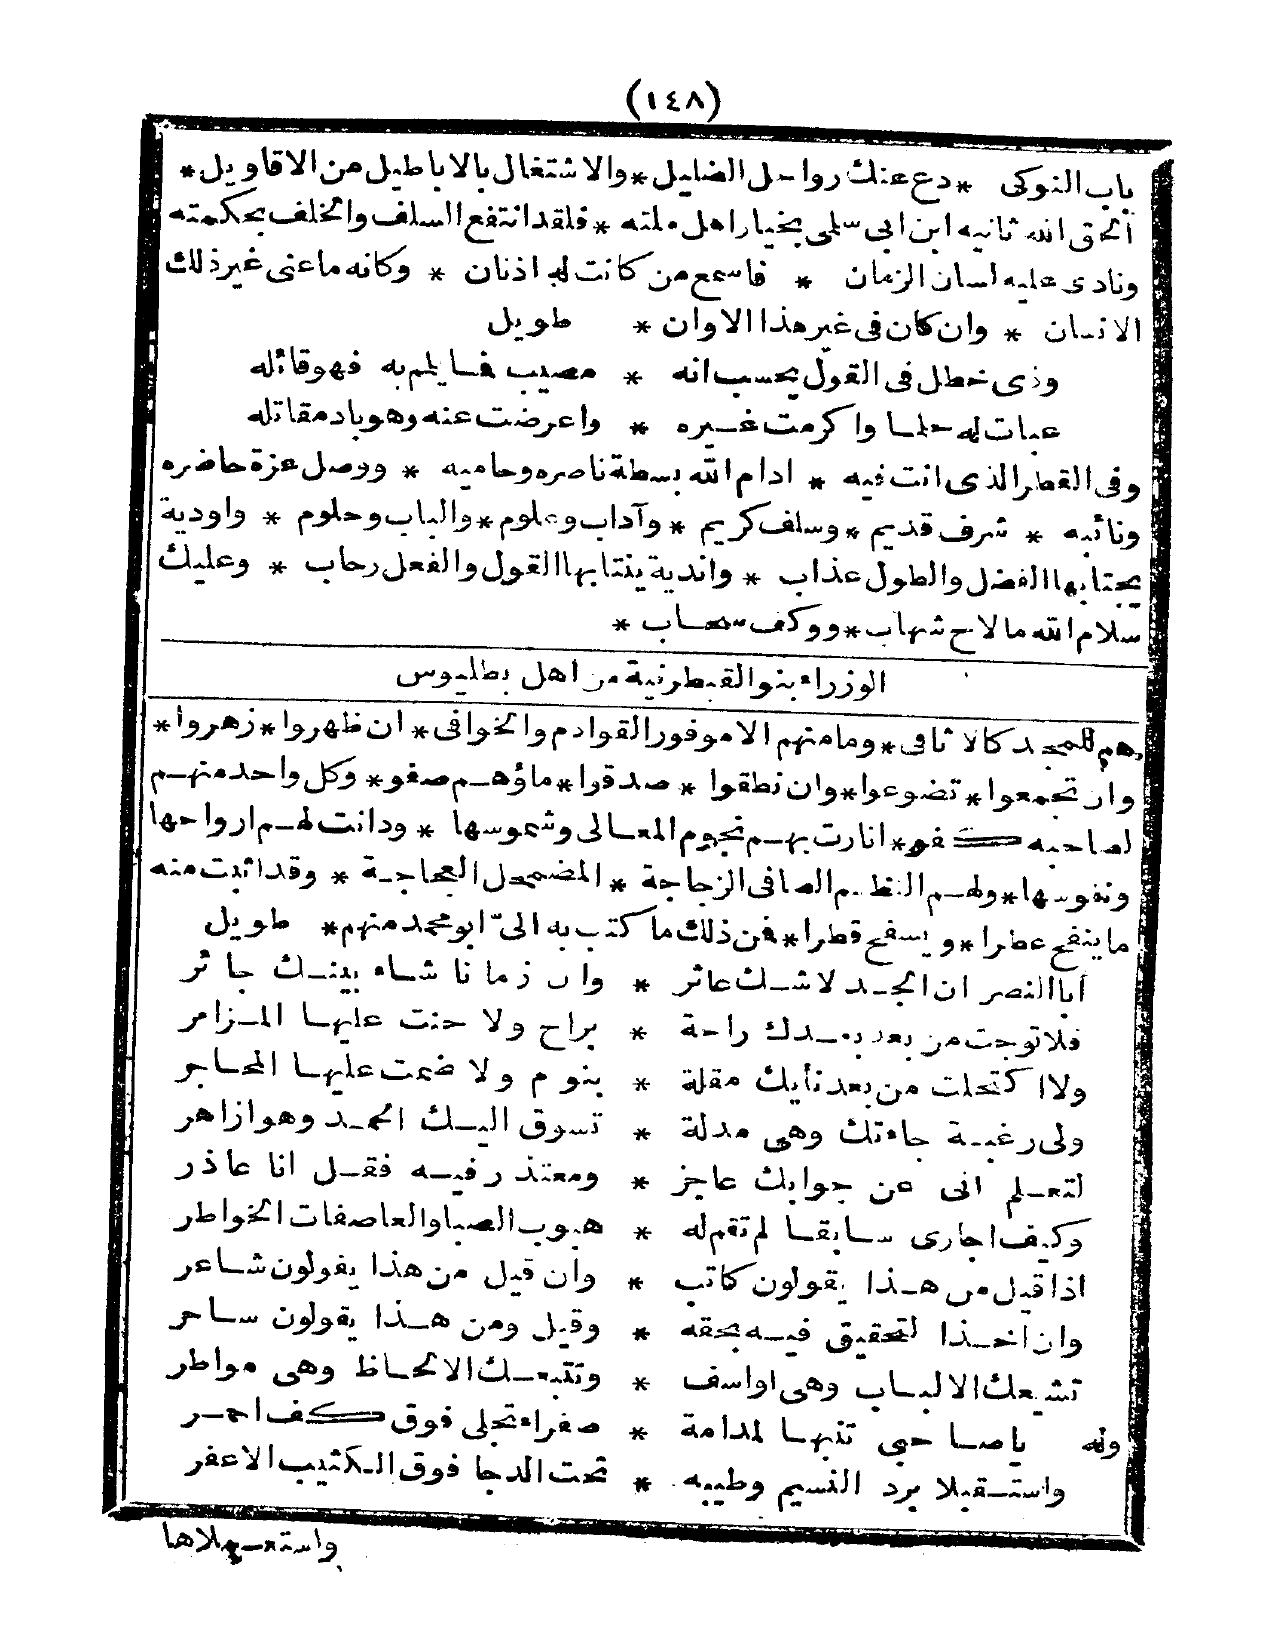 (١٤٨)
باب النوكى * دع عنك رواحل الضليل * والاشتغال بالاباطيل من الاقاويل *
ألحق الله ثانيه ابن ابي سلمى بخيار اهل ملته * فلقد انتفع السلف والخلف بحكمته
ونادى عليه لسان الزمان * فاسمع من كانت له اذنان * وكانه ما عنى غير ذلك
الانسان * وان كان فى غير هذا الاوان * طويل
وذى خطل فى القول يحسب انه * مصيب فما يلم به فهو قائله
عبات له حلما واكرمت غيره * واعرضت عنه وهو باد مقاتله
وفى القطر الذى انت فيه * ادام الله بسطة ناصره وحاميه * ووصل عزة حاضره
ونائبه * شرف قديم * وسلف كريم * وآداب وعلوم * والباب وحلوم * واودية
يجتابها الفضل والطول عذاب * واندية ينتابها القول والفعل رحاب * وعليك
سلام الله ما لاح شهاب * ووكف سحاب *
الوزراء بنو القبطرنية من اهل بطليوس
هم للمجد كالاثافى * ومامنهم الا موفور القوادم والخوافى * ان ظهروا * زهروا *
وان تجمعوا * تضوعوا * وان نطقوا * صدقوا * ماؤهم صفو * وكل واحد منهم
لصاحبه كفو * انارت بهم نجوم المعالى وشموسها * ودانت لهم ارواحها
ونفوسها * ولهم النظم الصافى الزجاجة * المضمحل العجاجة * وقد اثبت منه
ما ينفح عطرا * ويسفح قطرا * فمن ذلك ما كتب به الىّ ابو محمد منهم * طويل
أبا النصر ان الجد لا شك عاثر * وان زمانا شاء بينك جائر
فلا توجت من بعد بعدك راحة * براح ولا حنت عليها المزامر
ولا اكتحلت من بعد نأيك مقلة * بنوم ولا ضمت عليها المحاجر
ولى رغبة جاءتك وهى مدلة * تسوق اليك الحمد وهو ازاهر
لتعلم انى عن جوابك عاجز * ومعتذر فيه فقل انا عاذر
وكيف اجارى سابقا لم تقم له * هبوب الصبا والعاصفات الخواطر
اذا قيل من هذا يقولون كاتب * وان قيل من هذا يقولون شاعر
وان اخذا لتحقيق فيه بحقه * وقيل ومن هذا يقولون ساحر
تشيعك الالباب وهى اواسف * وتتبعك الالحاظ وهى مواطر
وله يا صاحبى تنبها لمدامة * صفراء تجلى فوق كف احمر
واستقبلا برد النسيم وطيبه * تحت الدجا فوق الكثيب الاعفر
واستعملاها